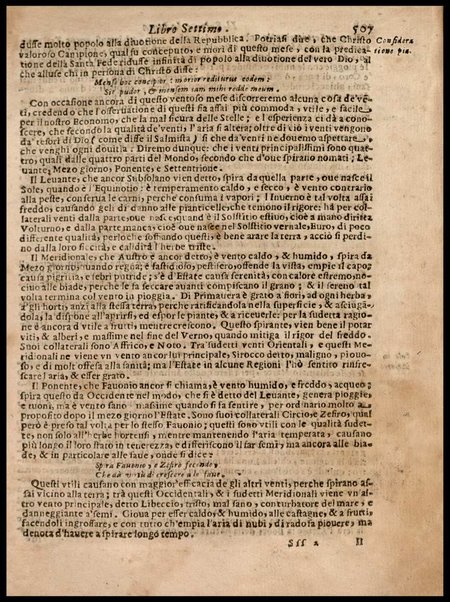 Libro Settimo. 507
dusse molto popolo alla diuotione della Republica. Potriasi dire, che Christo
Considera
valoroso Campione, qual fu conceputo, e morì di questo mese, con la predica-
tione pia.
tione della Santa Fede ridusse infinità di popolo alla diuotione del vero Dio, al
che alluse chi in persona di Christo disse:
Mensi hoc conceptus, morior redditurus eodem:
Sic pudor, & mensem tam mihi redde meum.
Con occasione ancora di questo ventoso mese discorreremo alcuna cosa de' vẽ-
ti, credendo che l'osseruatione di questi sia assai più commoda, vtile, e facile
per il nostro Economo, che la mal sicura delle Stelle; e l'esperienza ci dà a cono-
scere, che secondo la qualità de' venti, l'aria si altera; oltre di ciò i venti vengono
da' tesori di Dio (come disse il Salmista,) si che da venti ne douemo aspettare,
che venghi ogni douitia: Diremo dunque: che i venti principalissimi sono qua-
tro, quali dalle quattro parti del Mondo, secondo che d'oue spirano nomati; Le-
uante, Mezo giorno, Ponente, e Settentrione.
Il Leuante, che ancor Subsolano vien detto, spira da quella parte, oue nasce il
Sole, quando è l'Equinotio: è temperamento caldo, e secco, è vento contrario
alla peste, conserua le carni, perche consuma i vapori; l'Inuerno è tal volta assai
freddo, causando geli di danno alle piante, che temono il rigore: hà per col-
laterali venti dalla parte, oue nasce, quand'è il Solstitio estiuo, cioè a mano diritta
Volturno, e dalla parte manca, cioè oue nasce nel Solstitio vernale, Euro, di poco
differente qualità, perloche soffiando questi, è bene arare la terra, acciò si perdi-
no dalla loro siccità, e calidità l'herbe triste.
Il Meridionale, che Austro è ancor detto, è vento caldo, & humido, spira da
Mezo giorno; quando regna; è fastidioso, pestifero, offende la vista, empie il capo;
causa pigritia, e febri putride; e d'Estate causa serenità con calore estremo, no-
ciuo alle biade, perche le fa seccare auanti compiscano il grano; & il sereno tal
volta termina col vento in pioggia. Di Primauera è grato a fiori, ad ogni herba,
a gli horti, anzi alla stessa terra, perche ratificandola nella superficie, & asciugã-
dola, la dispone all'aprirsi, ed espor le piante, & a riceuerle: per la sudetta ragio-
ne è ancora d'vtile a frutti, mentre crescono. Questo spirante, vien bene il potar
viti, & alberi, e massime nel fine del Verno, quando mitiga il rigor del freddo.
Suoi collaterali sono Affrico, e Noto. Tra sudetti venti Orientali, e questi Me-
ridionali ne viene vn vento ancor lui principale, Sirocco detto, maligno, piouo-
so, e di molt'offesa alla sanità; ma l'Estate in alcune Regioni l'hò sentito rinfre-
scare l'aria, & esser grato.
Il Ponente, che Fauonio ancor si chiama, è vento humido, e freddo, acqueo;
spira questo da Occidente nel modo, che si è detto del Leuante, genera pioggie,
e tuoni, mà è vento sano, massime quando si fa sentire, per ordinario molto a
proposito dopo il mezo giorno l'Estate. Sono suoi collaterali Circio, e Zefiro, qual
però è preso tal volta per lo stesso Fauonio; questi sono vtili con le qualità sudet-
te, non solo all'herbe hortensi, mentre mantenendo l'aria temperata, causano
più longo il loro stato in tenerezza, e differiscono il far semi, ma ancora alle bia-
de, & in particolare alle faue, onde si dice:
Spira Fauonio, e Zefiro secondo,
Che dà virtù di crescere a le faue.
Questi vtili causano con maggior efficacia de gli altri venti, perche spirano as-
sai vicino alla terra; trà questi Occidentali, & i sudetti Meridionali viene vn'al-
tro vento principale, detto Libeccio, tristo, mal sano, conturbatore del mare, e
danneggiante a' semi. Gioua per esser caldo, & humido, alle castagne, & a frutti,
facendoli ingrossare, e con tutto ch'empia l'aria di nubi, di rado fa piouere, ma
denota d'hauere a spirare longo tempo.
Sss 2 Il